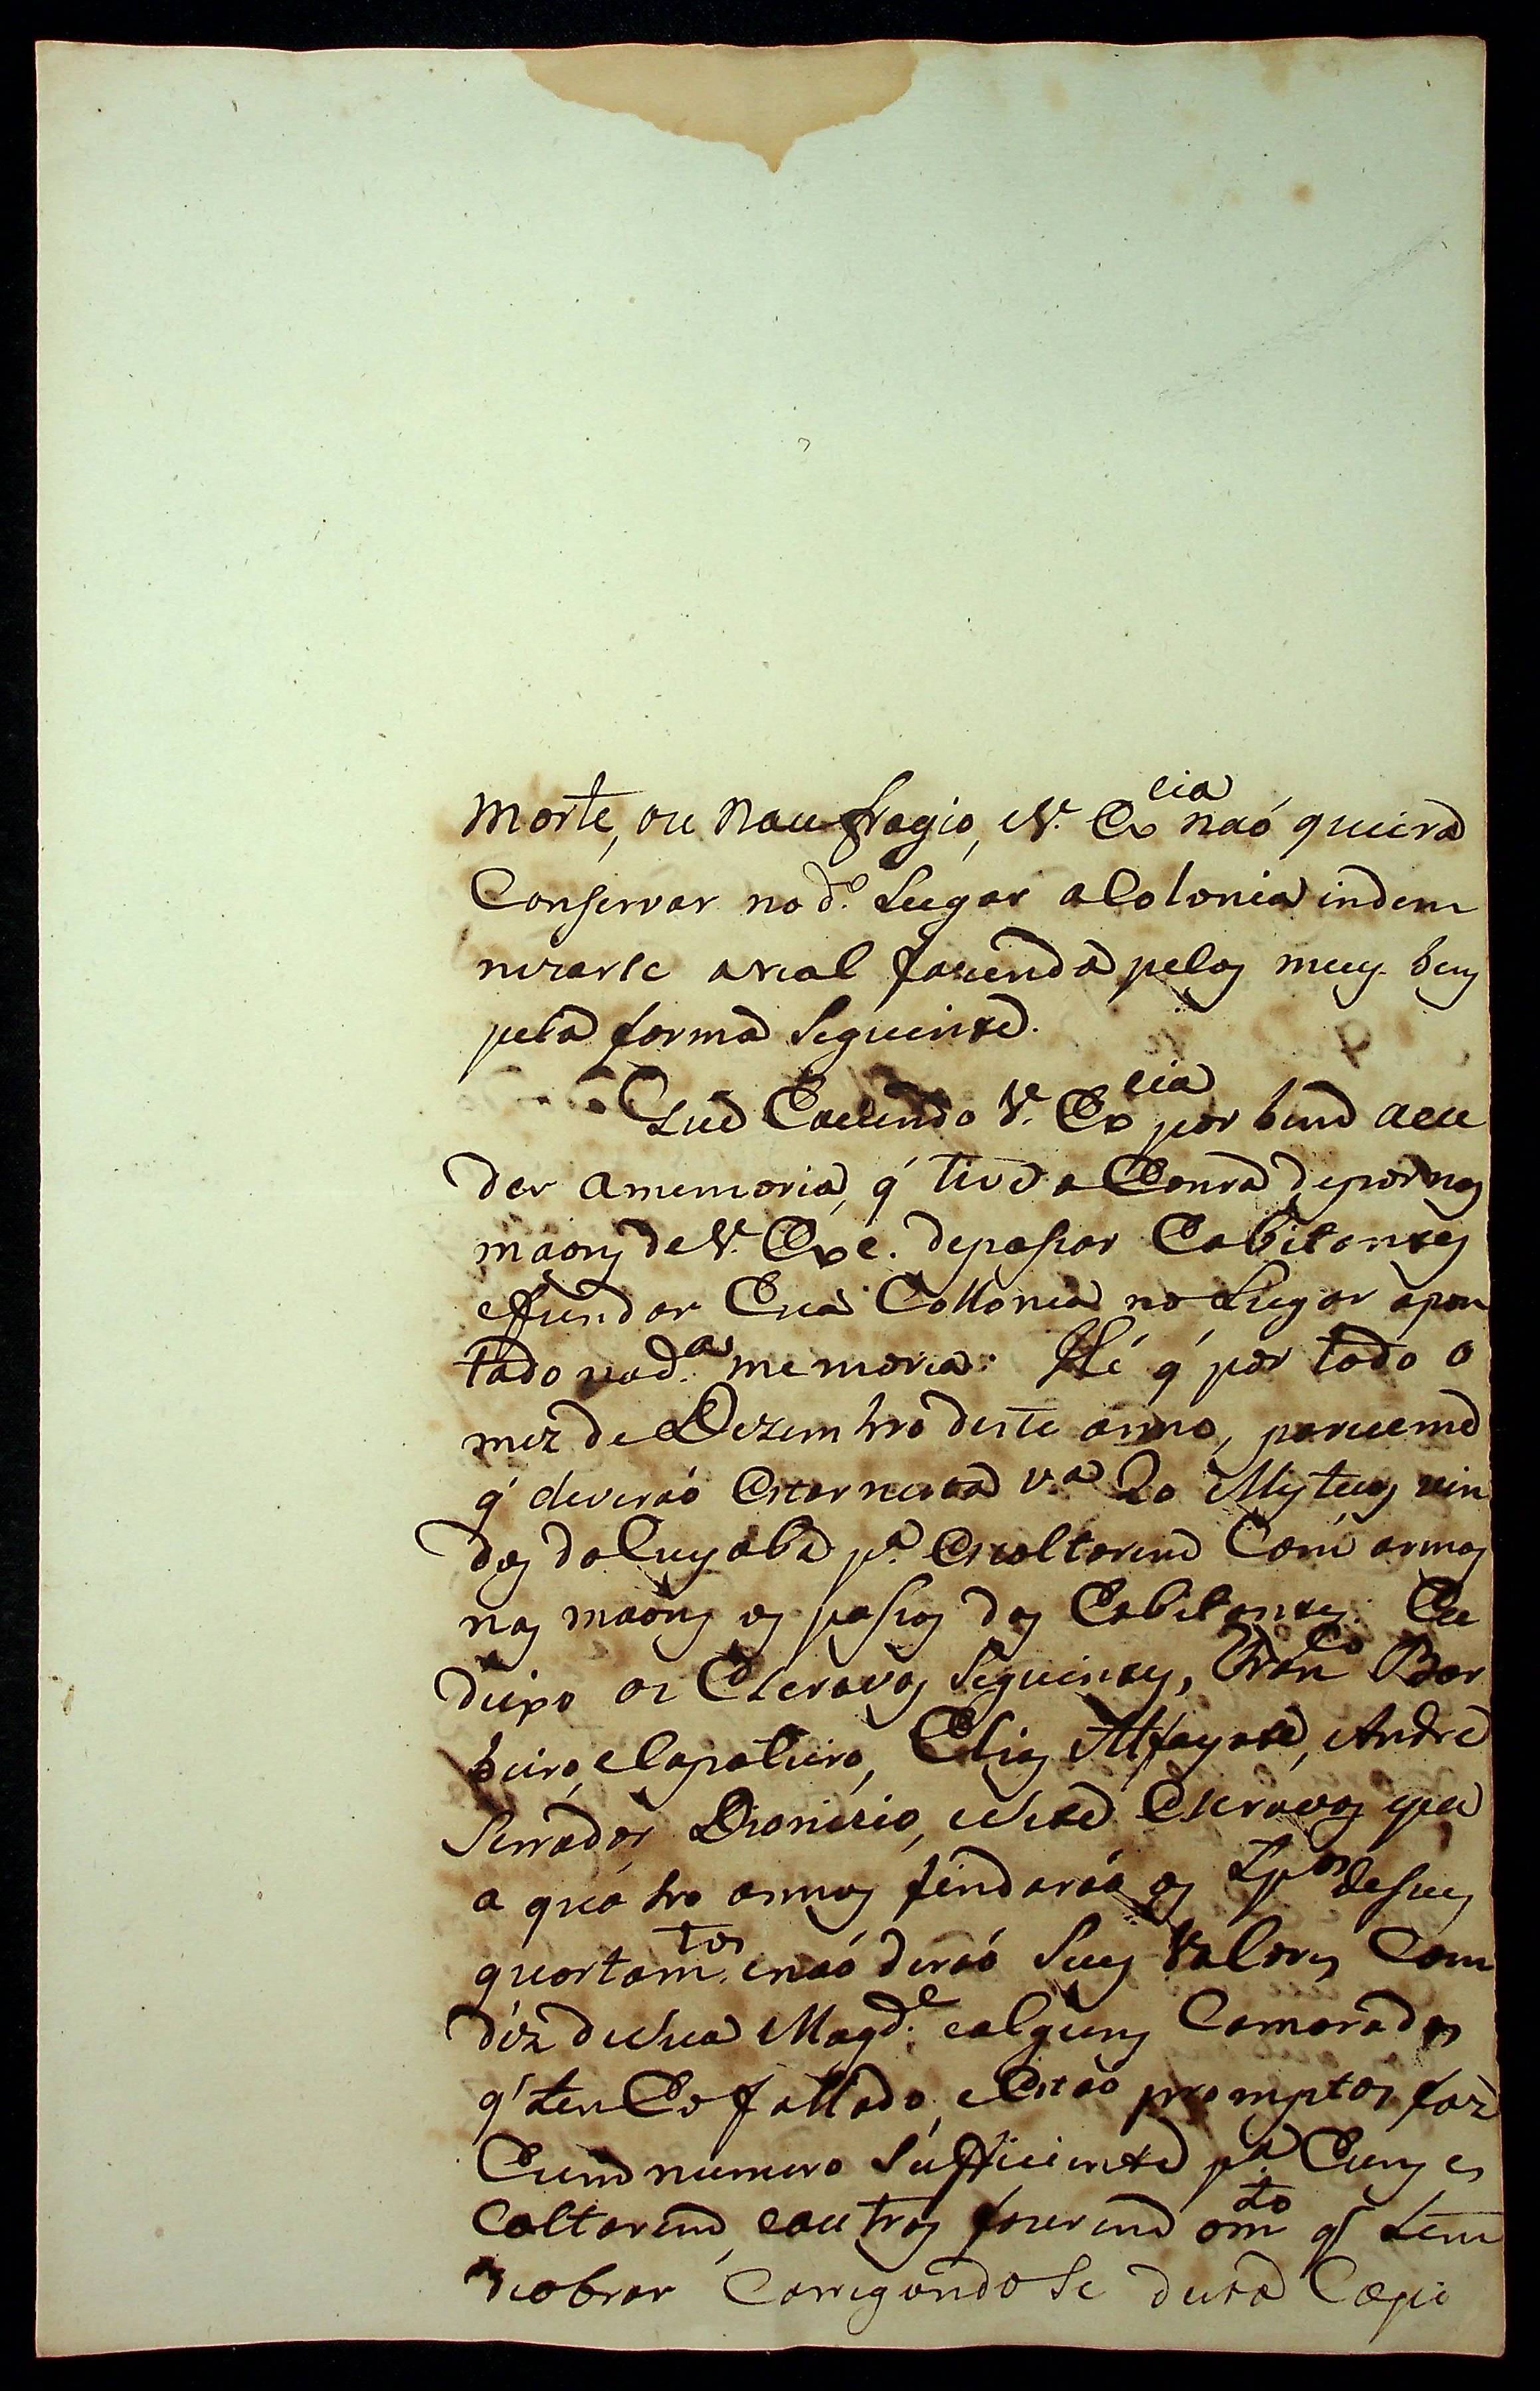 morte, ou naufragio, e V. Ex.cia naó queira
Conservar no d.o Lugar a Colonia indem
nizarse a real fazenda pelos meus bens
pela forma seguinte.
Que havendo V. Ex.cia por bem acu
der a memoria, q' tive a honra depor nas
maons de V. Exc. depasar habitantes
efundar hua Collonia no Lugar apon
tado nad.a memoria: Hé q' por todo o
mez de Dezembro deste anno, pareceme
q' deveráo estar nesta v.a 20 Mysticos vin
dos do Cuyaba p.a escoltarem com armas
nas maons os pasos dos habitantes. Eu
deixo os Escravos seguintes, Fran.co Bar
beiro, e Capateiro, Elias Alfayate, André
Serrador Dionizio, e este Escravos
a quatro annos findaráo os tp.os deseus
quartam.tos, enaó deráo seus valores com
diz desua Mag.de ealguns Camaradas
q' tenho fallado, estáo promptos faz
hum numero sufficiente p.a huns es
coltarem, eoutros fazerem om.to q' tem
deobrar Carregandose desta Capi